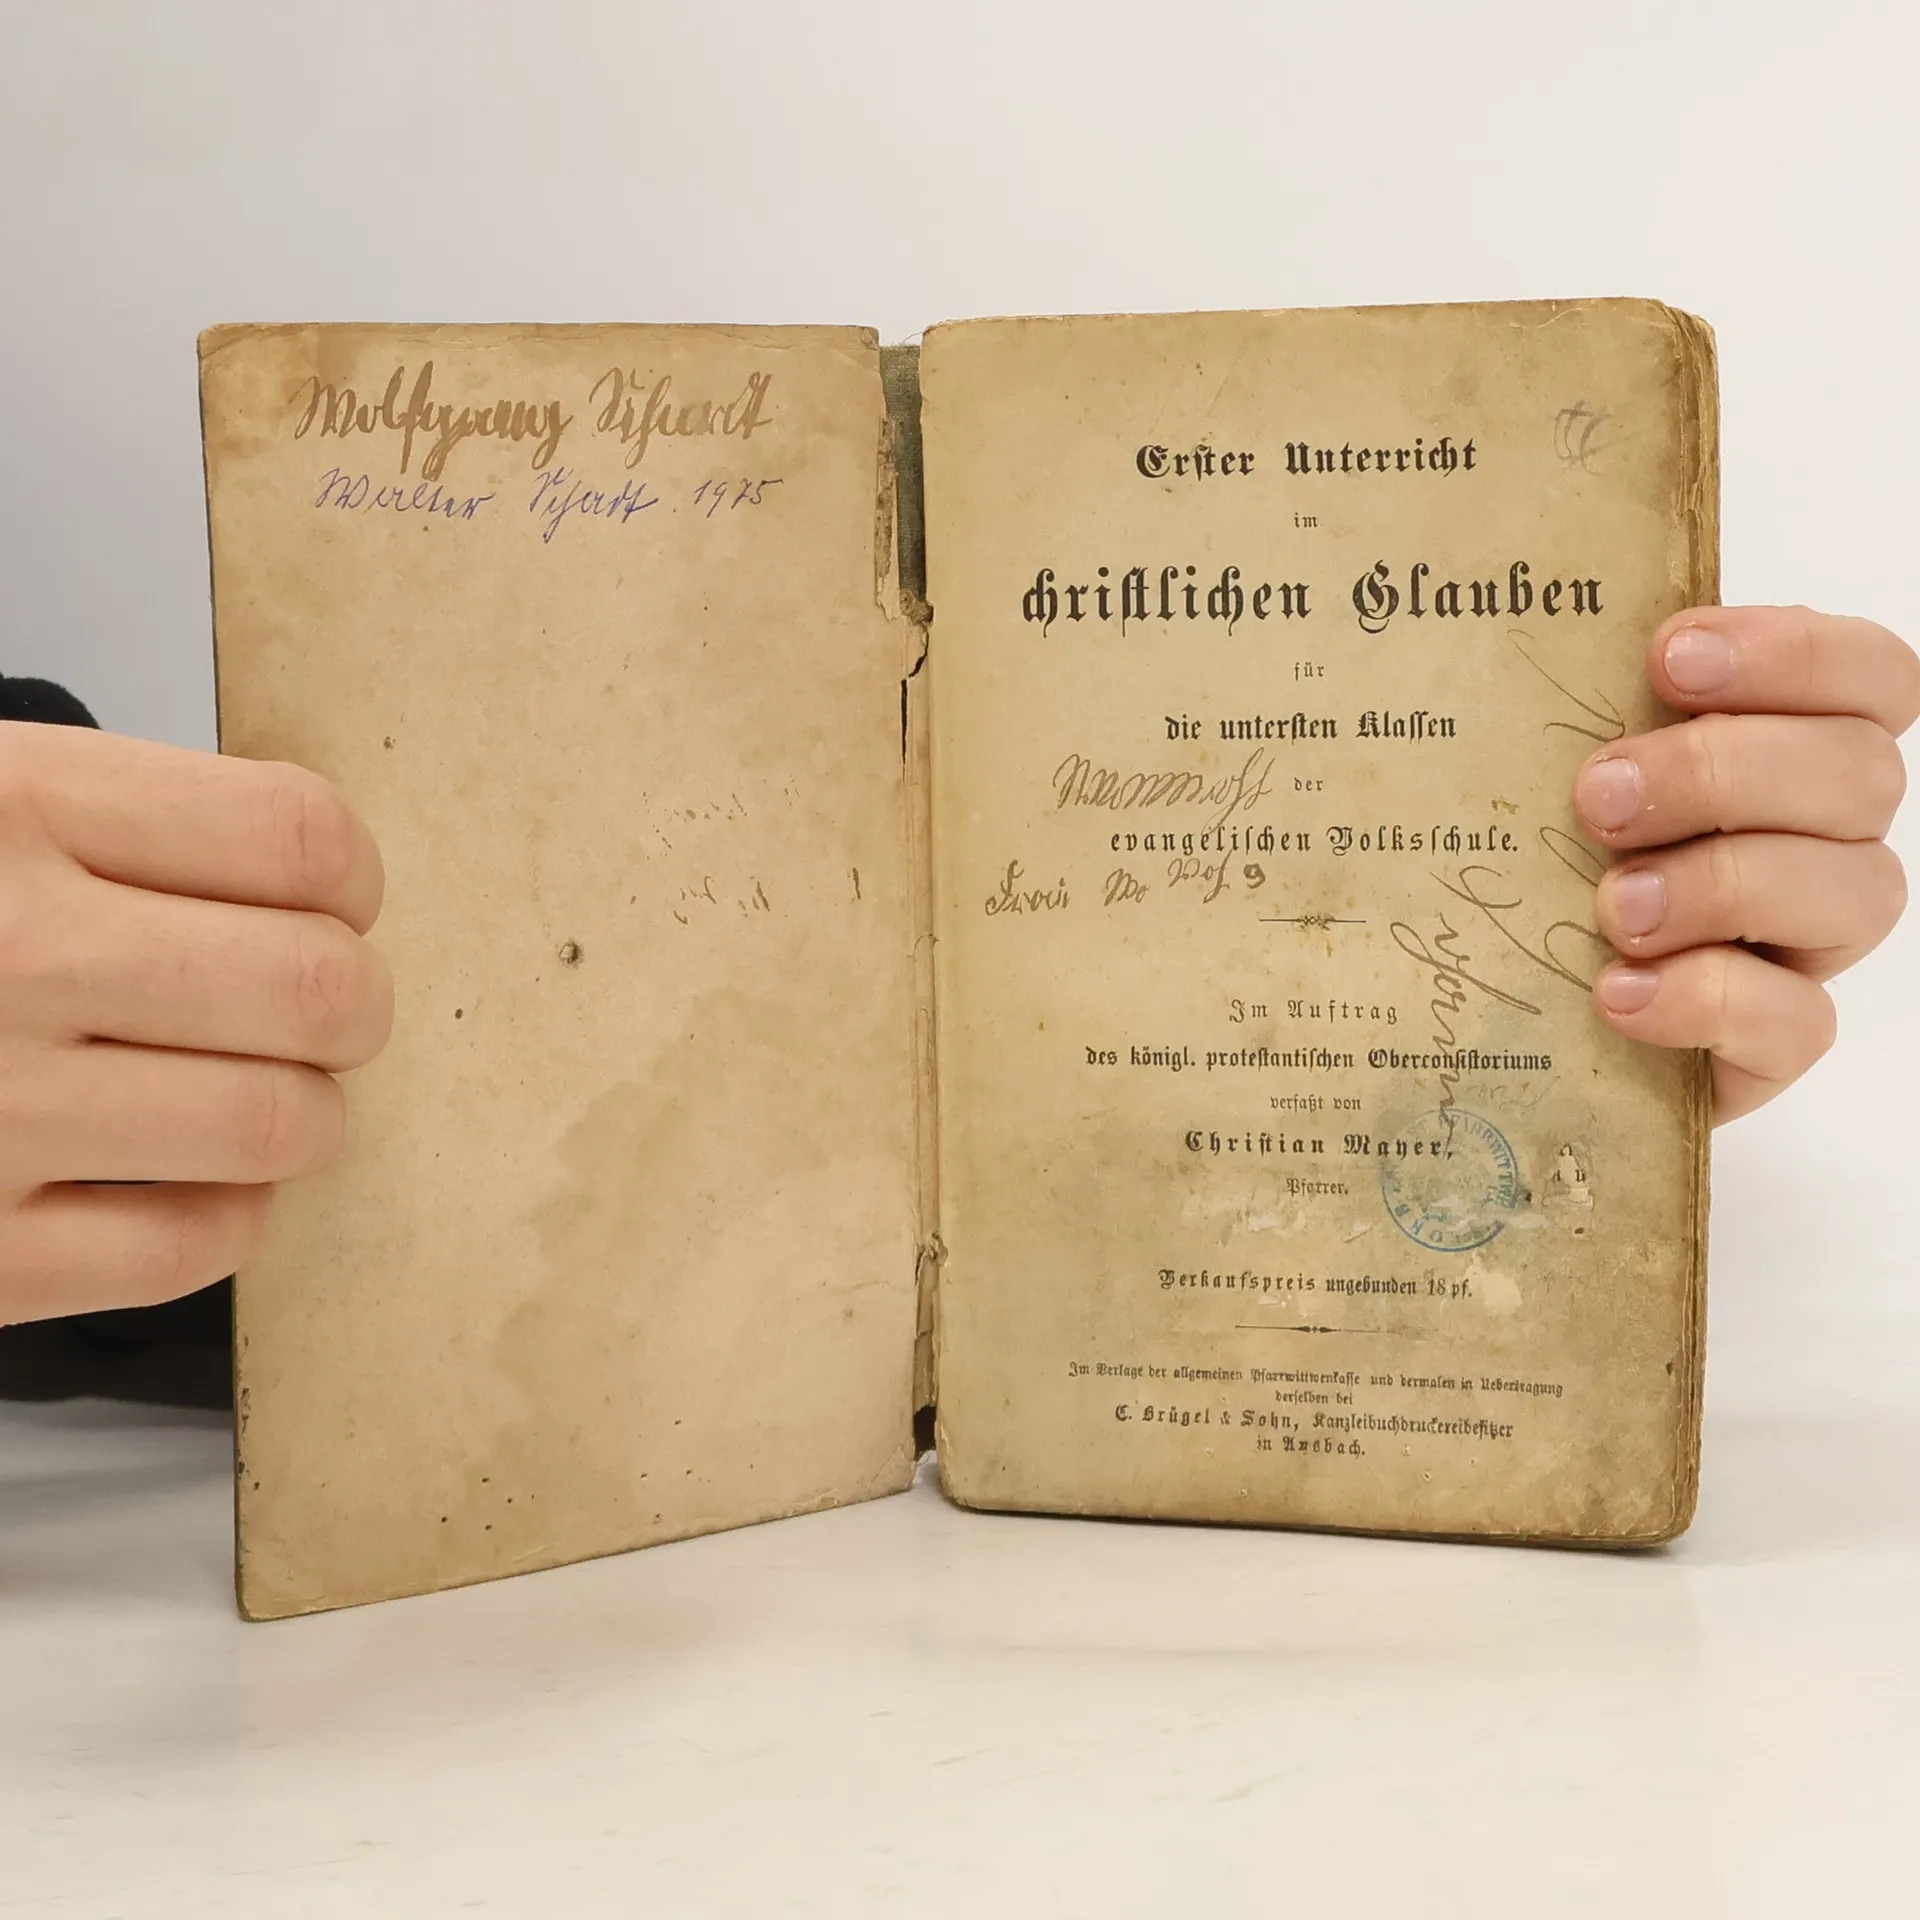 Wolfgang Schardt
Walter Schadt. 1975
Erster Unterricht
im
christlichen Glauben
für
die untersten Klassen
der
evangelischen Volksschule.
Frau Wo
Im Auftrag
des königl. protestantischen Oberconsistoriums
verfaßt von
Christian Mayer,
Pfarrer.
Verkaufspreis ungebunden 18 pf.
Im Verlage der allgemeinen Pfarrwittwenkasse und dermalen in Uebertragung
derselben bei
C. Brügel & Sohn, Kanzleibuchdruckereibesitzer
in Ansbach.